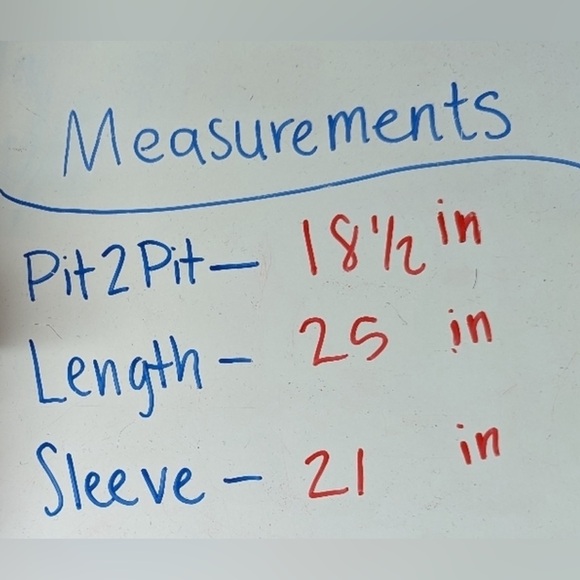 Measurements
Pit2Pit— 18 1/2 in
Length - 25 in
Sleeve - 21 in